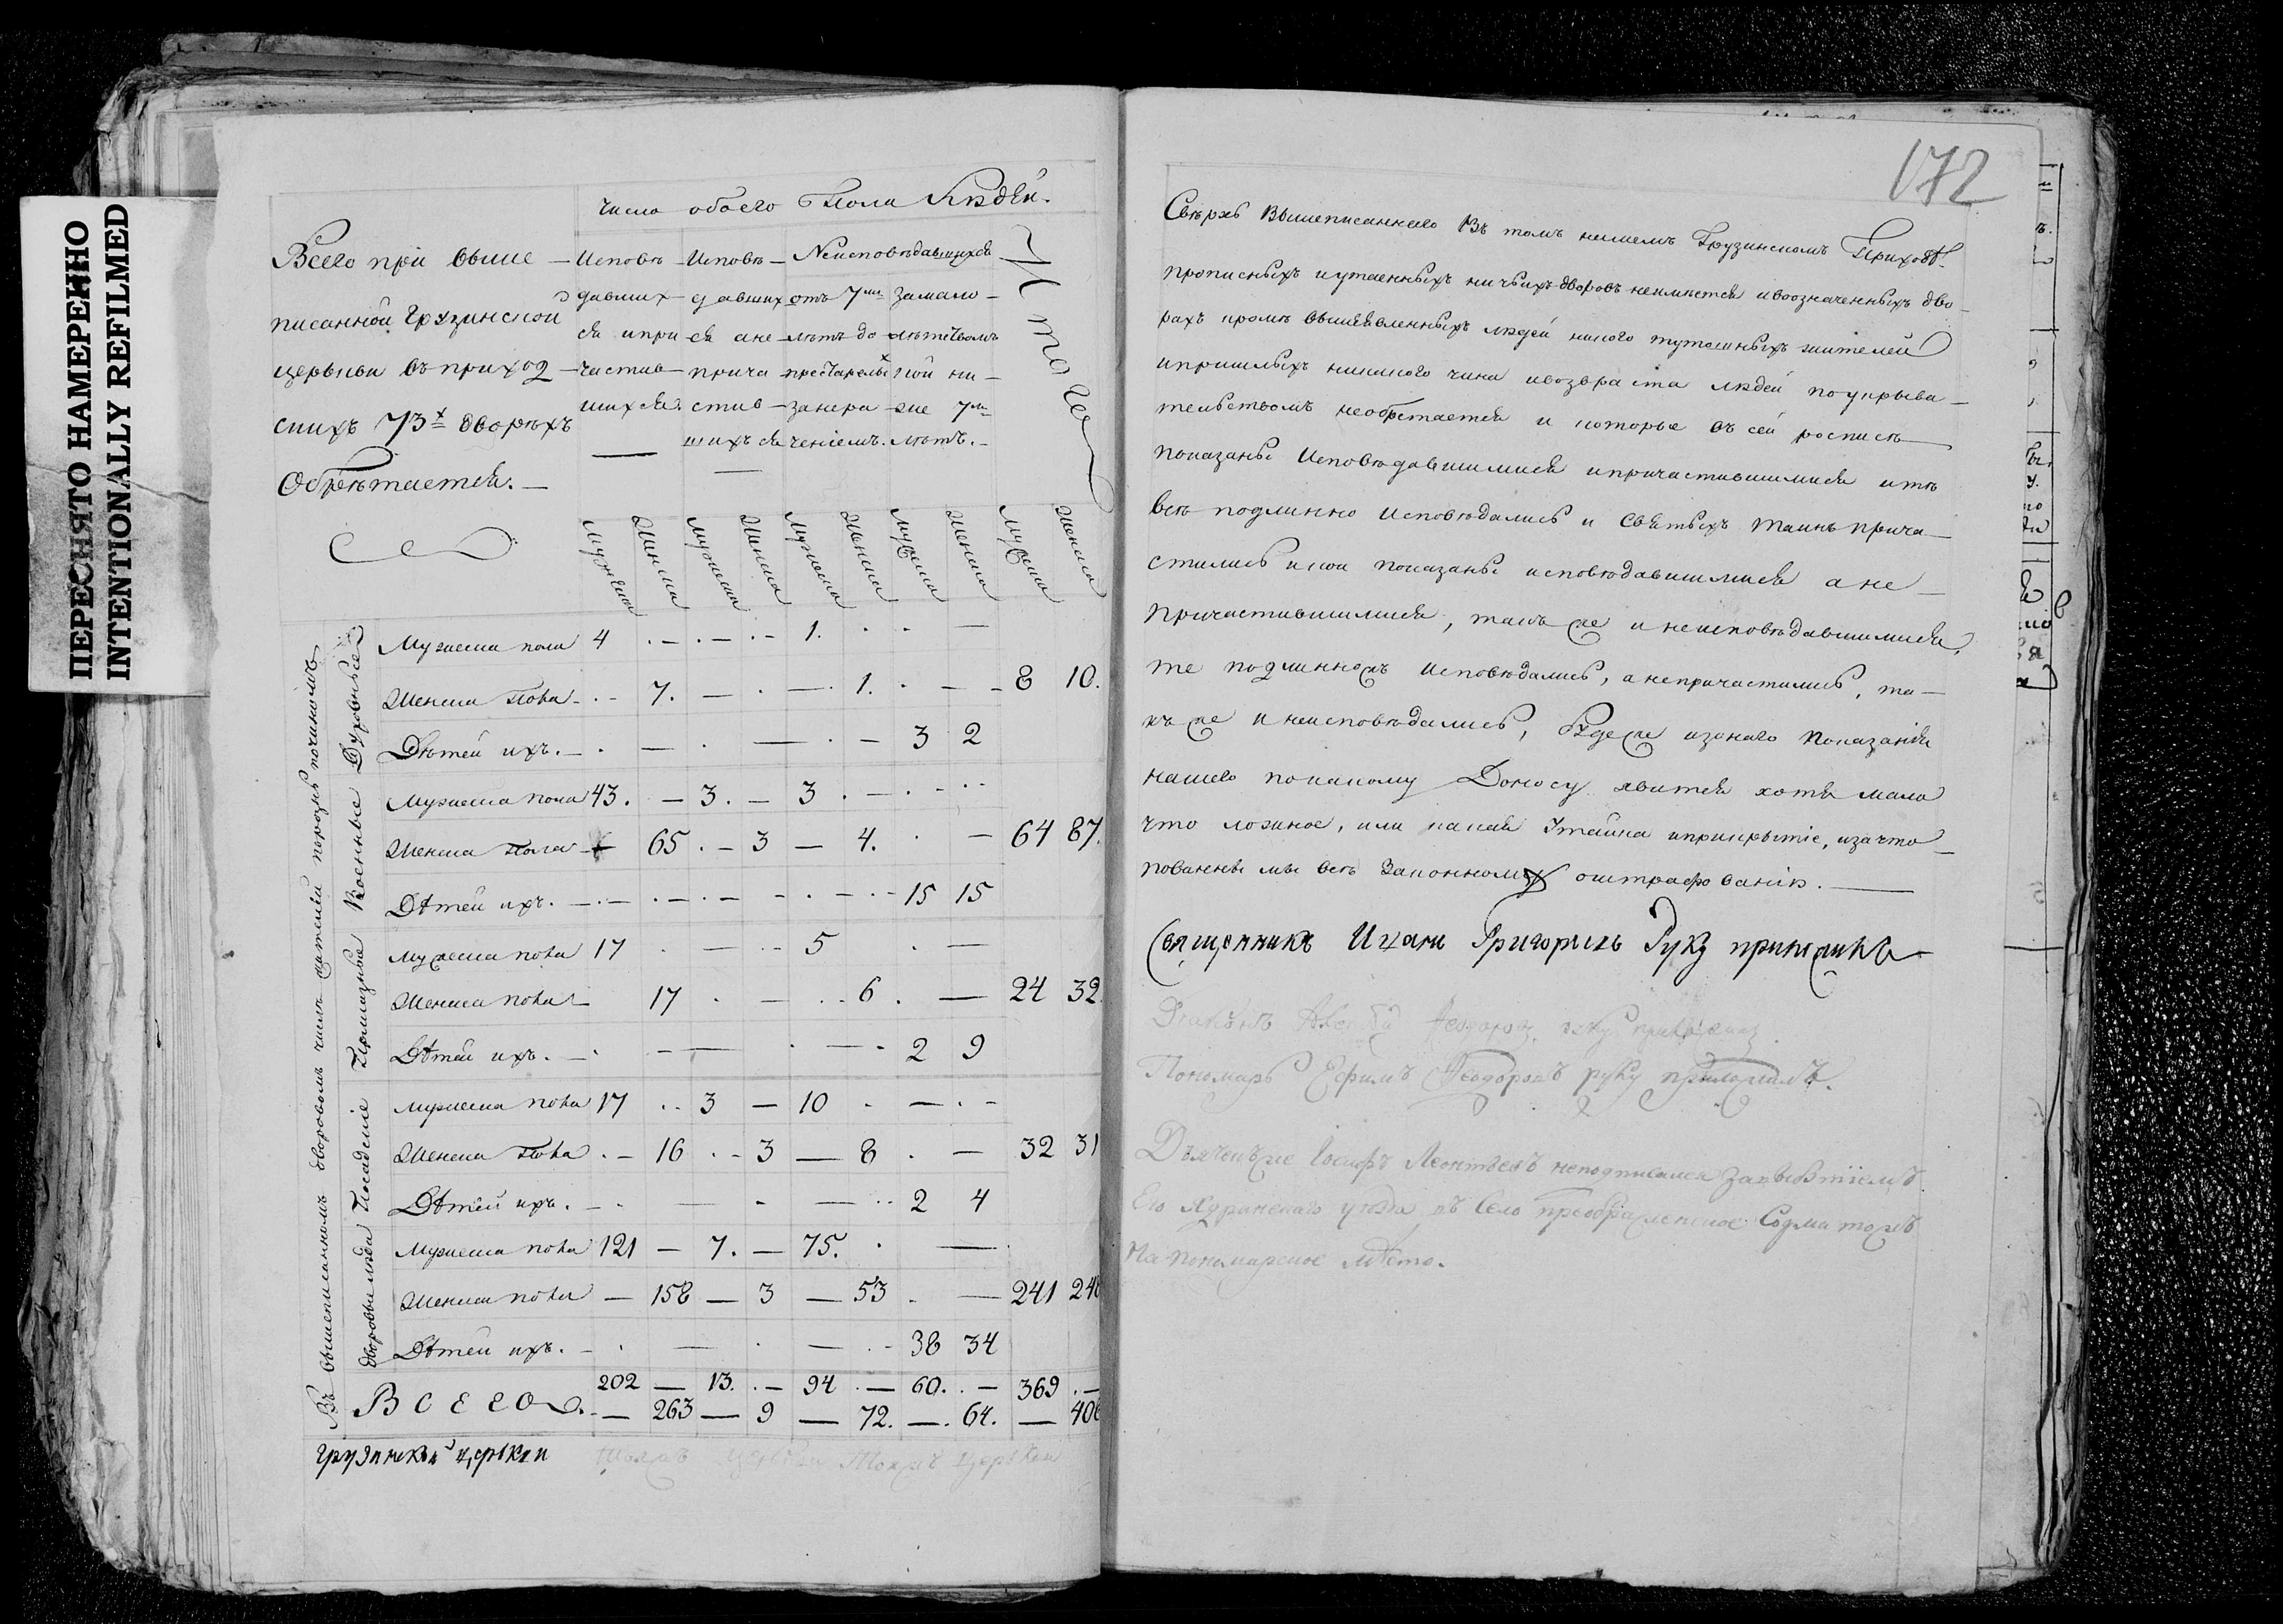 ПЕРЕСНЯТО НАМЕРЕННО
INTENTIONALLY REFILMED
число обоего пола людей.
Всего при выше –
писанной Грузинской
церькви въ приход –
скихъ 73х дворѣхъ
Обрѣтается. —
Исповѣ –
давших –
ся и при
частив –
шихся.
Исповѣ –
давших
ся а не
прича
стив –
шихъся
Неисповѣдавшихся
отъ 7ми
лѣтъ до
престарелых
за нера
чениемъ.
за мало –
лѣтством
ни –
же 7ми
лѣтъ. –
Итого
Мужеска Женска Мужеска Женска Мужеска Женска Мужеска Женска Мужеска Женска
Въ вышеписанномъ дворовомъ числѣ порознь по чиномъ
Духовные
Мужеска пола 4 . – . – . – 1. . . —
Женска пола – . – 7. — . — 1. . – – 8 10.
Дѣтей ихъ. – . — . — . – 3 2
Военные
Мужеска пола 43. – 3. – 3 . – . – . .
Женска пола – 65 . – 3 – 4. . – 64 87.
Дѣтей ихъ. – . – . – . – – . – . – 15 15
Приказные
Мужеска пола 17 . – . . 5 . –
Женска пола – 17 . – . . 6 . — 24 32.
Дѣтей ихъ. – . – — . – - 2 9
Посадские
Мужеска пола 17 . . 3 – 10 - – . –
Женска пола . – 16 . – 3 — 8 . – 32 31
Дѣтей ихъ. – . — - — . . 2 4
Дворовы люди
Мужеска пола 121 – 7. – 75. . —
Женска пола – 158 – 3 – 53 . — 241 248
Дѣтей ихъ. – . — . – . – 38 34
ВСЕГО. 202 — 13. . – 94 . – 60. . – 369 . –
– — 263 — 9 — 72. – . 64. — 406
Грузинской церкви
172
Сверхъ вышеписаннаго въ томъ нашемъ Грузинскомъ Приходѣ
прописныхъ и утаенныхъ ничьихъ дворовъ неимеется и воозначенныхъ дво –
рахъ кромѣ вышеявленныхъ людей никого тутошныхъ жителей
и пришлыхъ никакого чина и возвраста людей по укрыва –
тельствомъ необретается и которые въ сей росписѣ
показаны исповѣдавшимися и причастившимися и тѣ
всѣ подлинно исповѣдались и святыхъ таинъ прича –
стились и кои показаны исповѣдавшимися а не –
причастившимися, такъ же и неисповѣдавшимися,
те подлинножъ исповѣдались, а непричастились, та –
къ же и неисповѣдались, Буде же изонаго показания
нашего по какому доносу явится хотя мало
что ложное, или какая утайка и прикрытие, и за что
повинны мы всѣ законному оштрафованию. —
Священникъ Иоанн Григорьевъ Руку приложилъ
Диаконъ Алексѣй Феодоров руку приложилъ
Пономарь Ефимъ Феодоровъ руку приложилъ.
Дьячекъ же Иосифъ Леонтьевъ неподписался за выбытиемъ
Его Ядринскаго уезда въ село преображенское
на пономарское мѣсто.